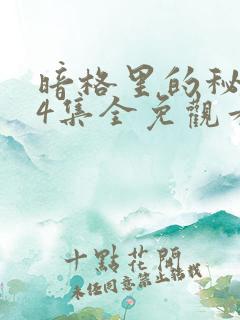 暗格里的秘
4集全免觀
十點花開
未经同意禁止转载